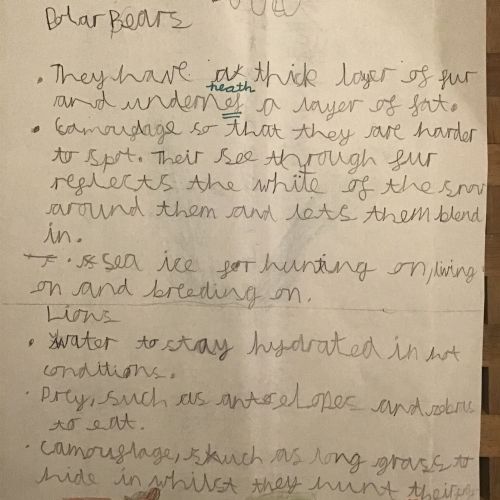 Polar Bears
• They have a thick layer of fur
heath
and undernef a layer of fat.
• Camoudage so that they are harder
to spot. Their see through fur
reglects the white of the snow
around them and lets them blend
in.
• sea ice for hunting on, living
on and breeding on.
Lions
• Water to stay hydrated in hot
conditions.
• Prey, such as antoelopes and zebras
to eat.
• Camouglage, such as long grass to
hide in whilst they hunt their